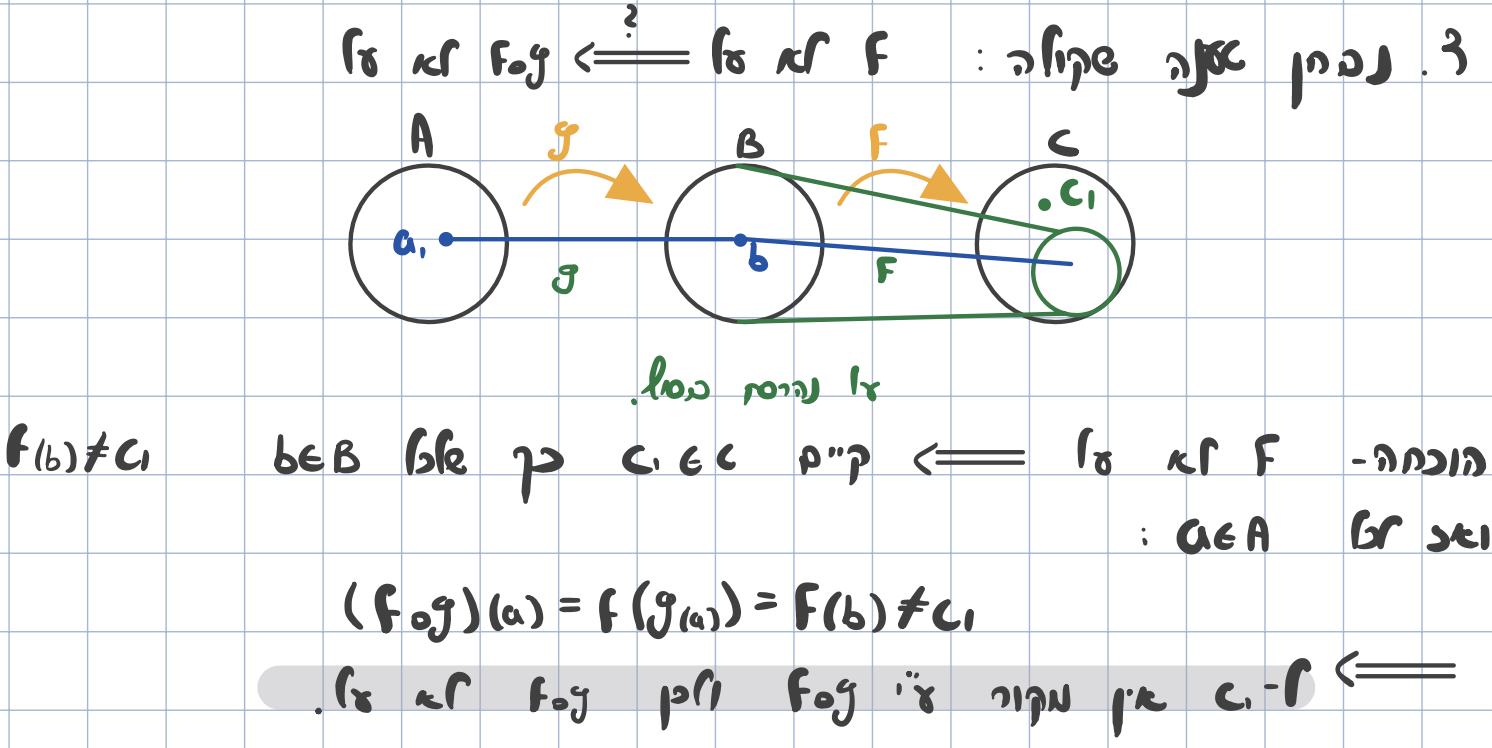 3. נבחן טענה שקולה : F לא על ⟸? Fog לא על
A g B F C
a₁ g b F c₁
על נהרסת בסוף.
הוכחה- F לא על ⟸ קיים c₁ ∈ C כך שלכל b∈B F(b)≠c₁
ואז לכל a∈A :
(Fog)(a) = F(g(a)) = F(b) ≠ c₁
⟸ ל-c₁ אין מקור ע״י Fog ולכן Fog לא על.